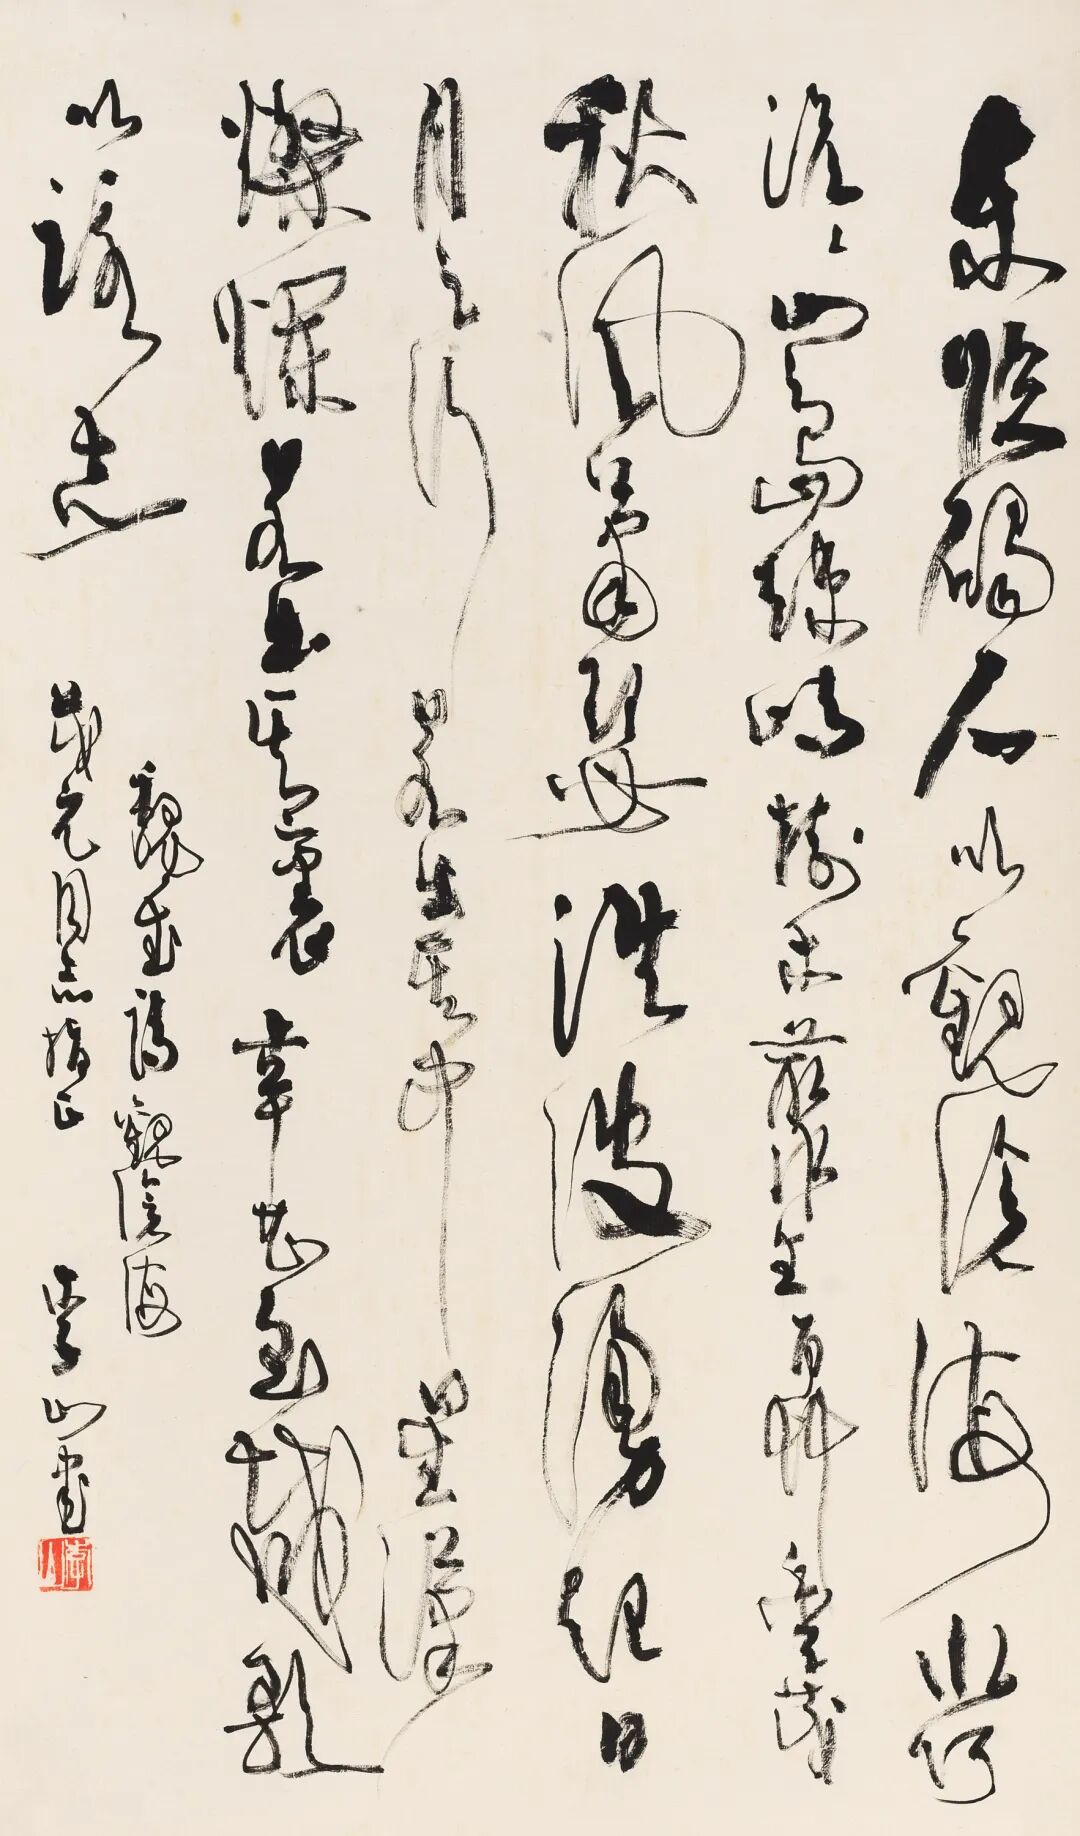 東臨碣石以觀滄海水何
澹〻山島竦峙樹木叢生百草豐茂
秋風蕭瑟洪波湧起日
月之行若出其中星漢
燦爛若出其裏幸甚至哉歌
以詠志
魏武詩觀滄海
茂元同志指正 李山書